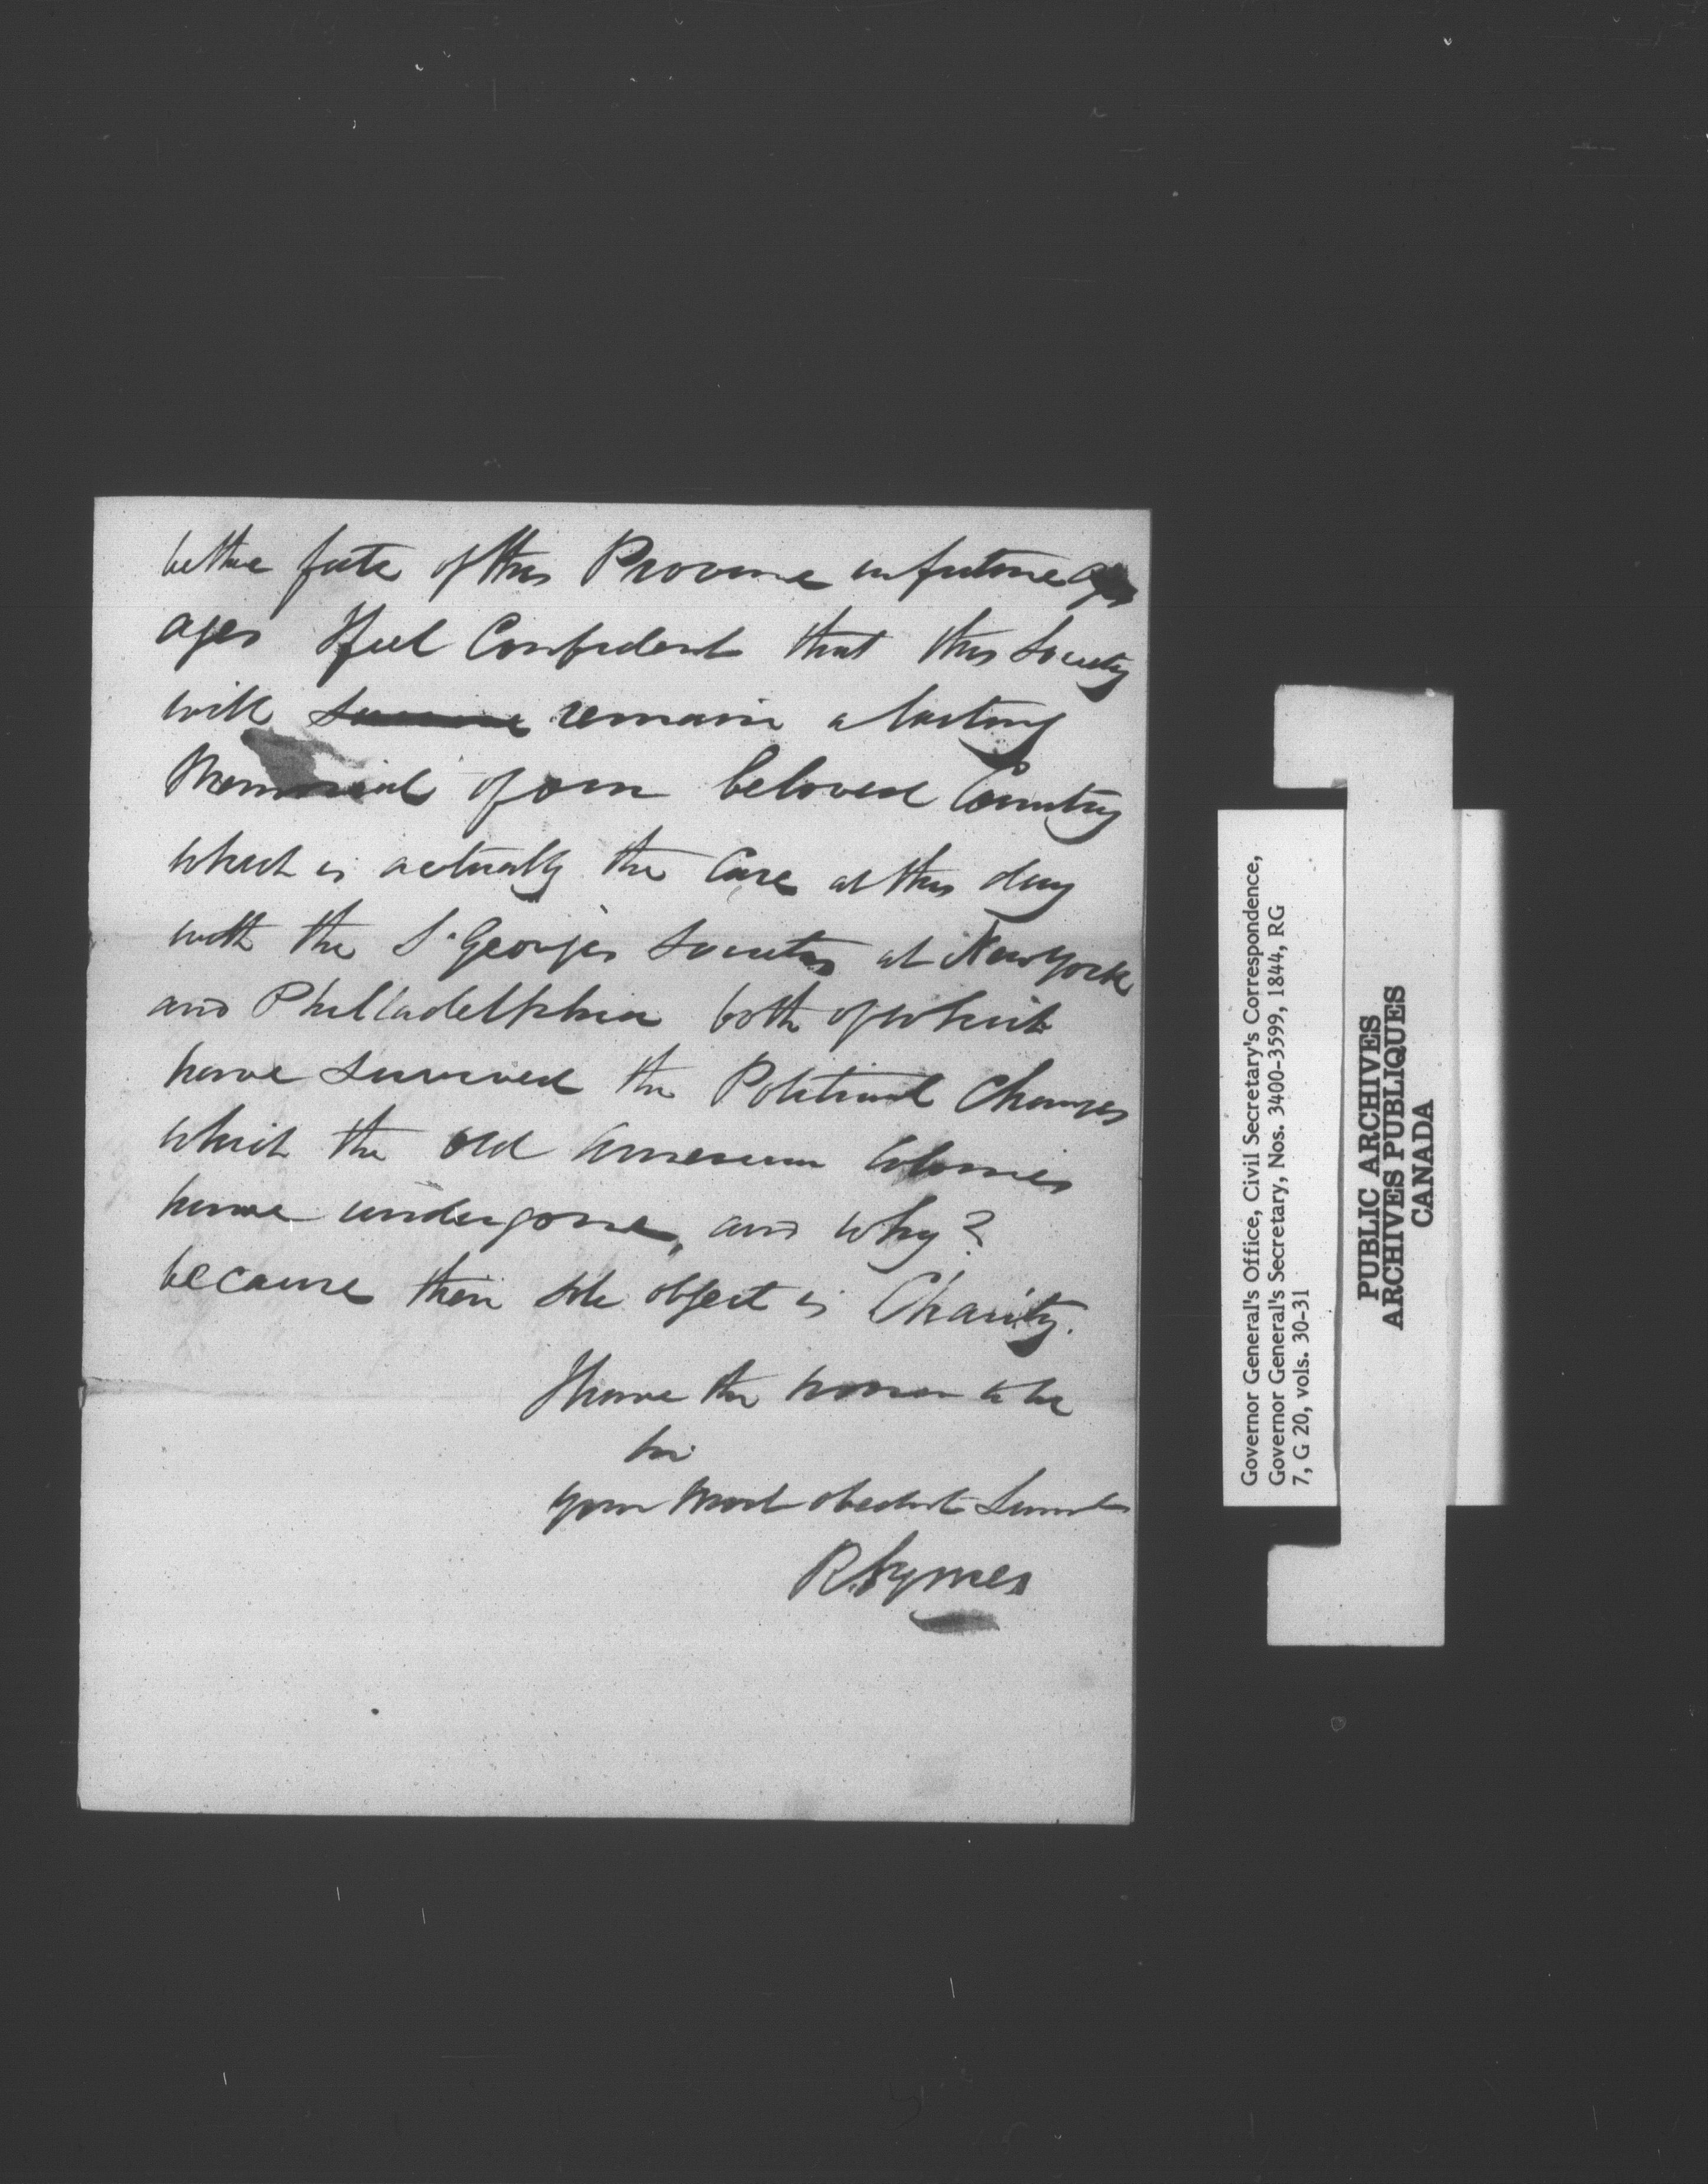 be the fate of this Province in future ages
ages I feel Confident that this Society
will survive remain a lasting
Memorial of our beloved Country
which is actually the Case at this day
with the St Georges Societies at New York
and Philladelphia both of which
have survived the Political Changes
which the old American Colonies
have undergone, and why?
because their sole object is Charity.
I have the honor to be
Sir
your most obedient Servant
R. Symes
Governor General's Office, Civil Secretary's Correspondence,
Governor General's Secretary, Nos. 3400-3599, 1844, RG
7, G 20, vols. 30-31
PUBLIC ARCHIVES
ARCHIVES PUBLIQUES
CANADA